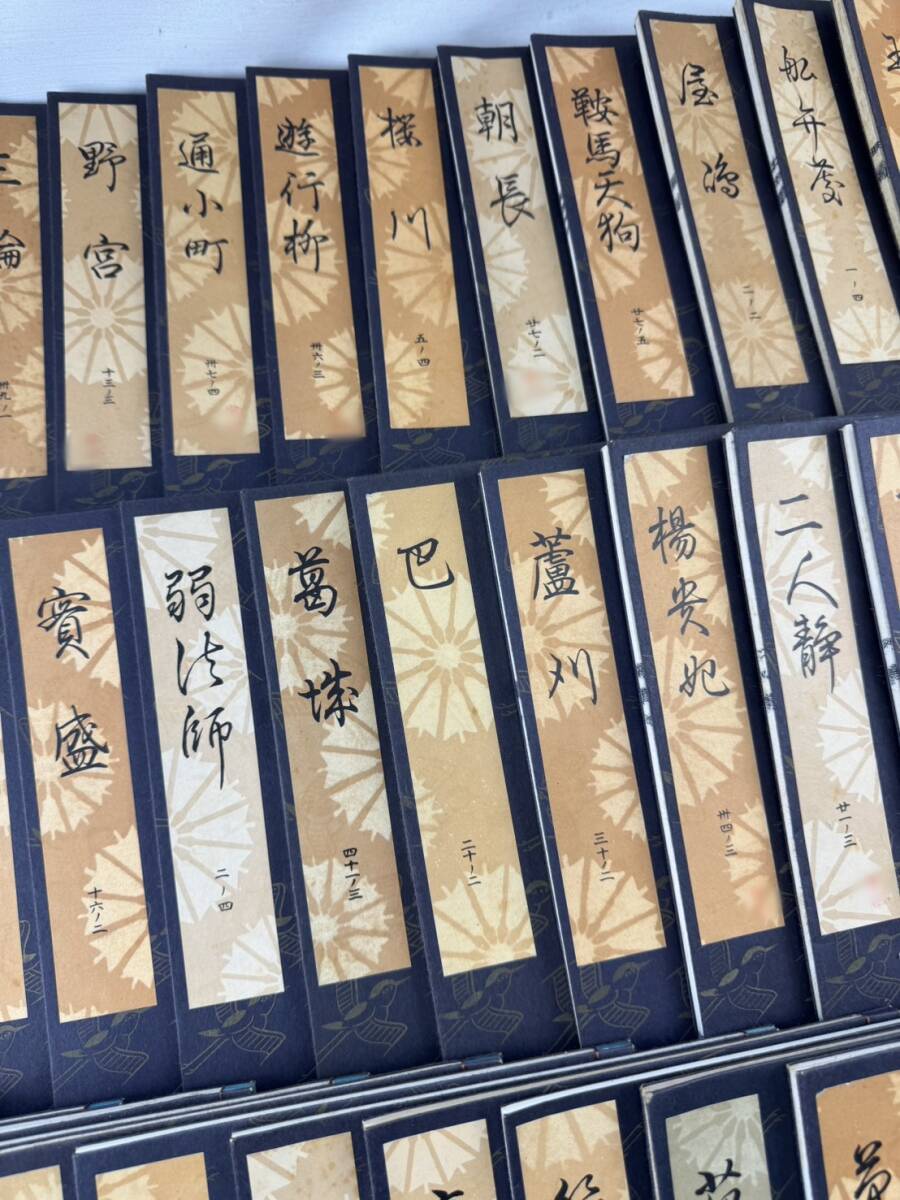 三輪
卅九ノ一
野宮
十三ノ三
通小町
卅七ノ四
遊行柳
卅六ノ三
桜川
五ノ四
朝長
廿七ノ二
鞍馬天狗
廿七ノ五
屋嶋
二ノ二
船弁慶
一ノ四
實盛
十六ノ二
弱法師
二ノ四
葛城
四十一ノ三
巴
二十ノ二
蘆刈
三十ノ二
楊貴妃
卅四ノ三
二人静
廿一ノ三